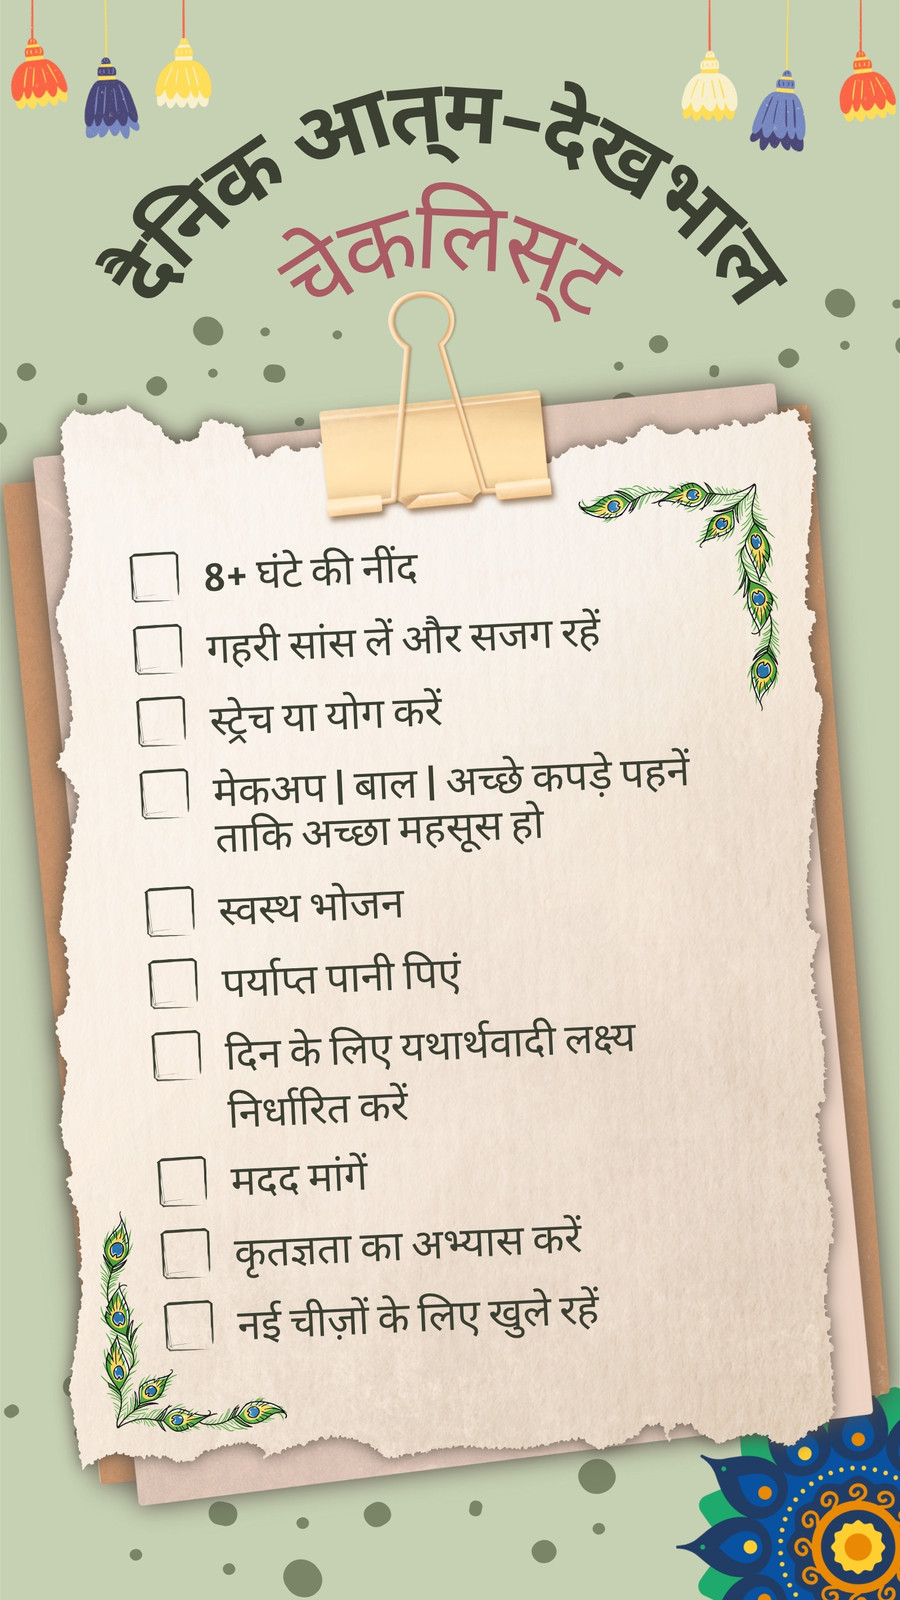 दैनिक आत्म-देखभाल
चेकलिस्ट
8+ घंटे की नींद
गहरी सांस लें और सजग रहें
स्ट्रेच या योग करें
मेकअप | बाल | अच्छे कपड़े पहनें
ताकि अच्छा महसूस हो
स्वस्थ भोजन
पर्याप्त पानी पिएं
दिन के लिए यथार्थवादी लक्ष्य
निर्धारित करें
मदद मांगें
कृतज्ञता का अभ्यास करें
नई चीज़ों के लिए खुले रहें